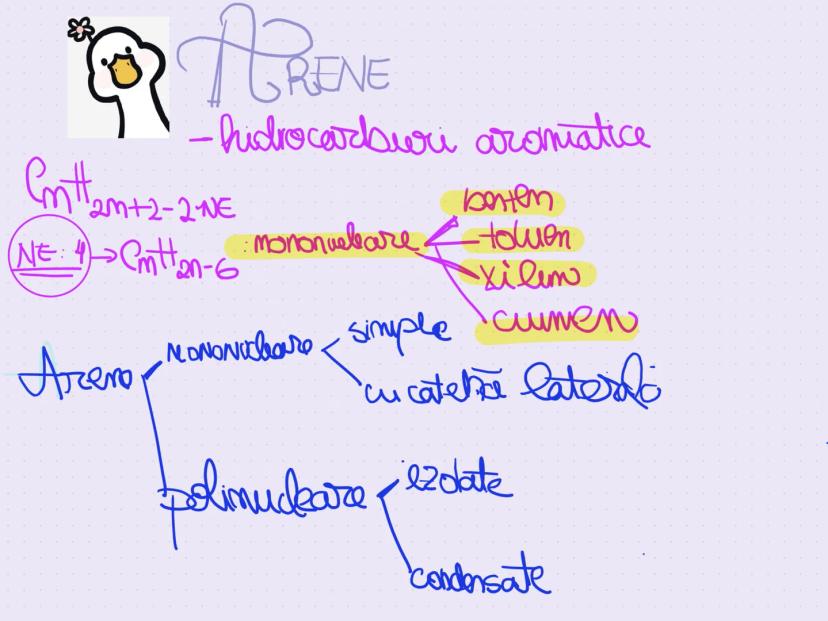 ARENE
- hidrocarburi aromatice
CnH2n+2-2·NE
NE: 4 → CnH2n-6
: mononucleare
benzen
toluen
xilen
cumen
Arene
mononucleare
simple
cu catenă laterală
polinucleare
izolate
condensate